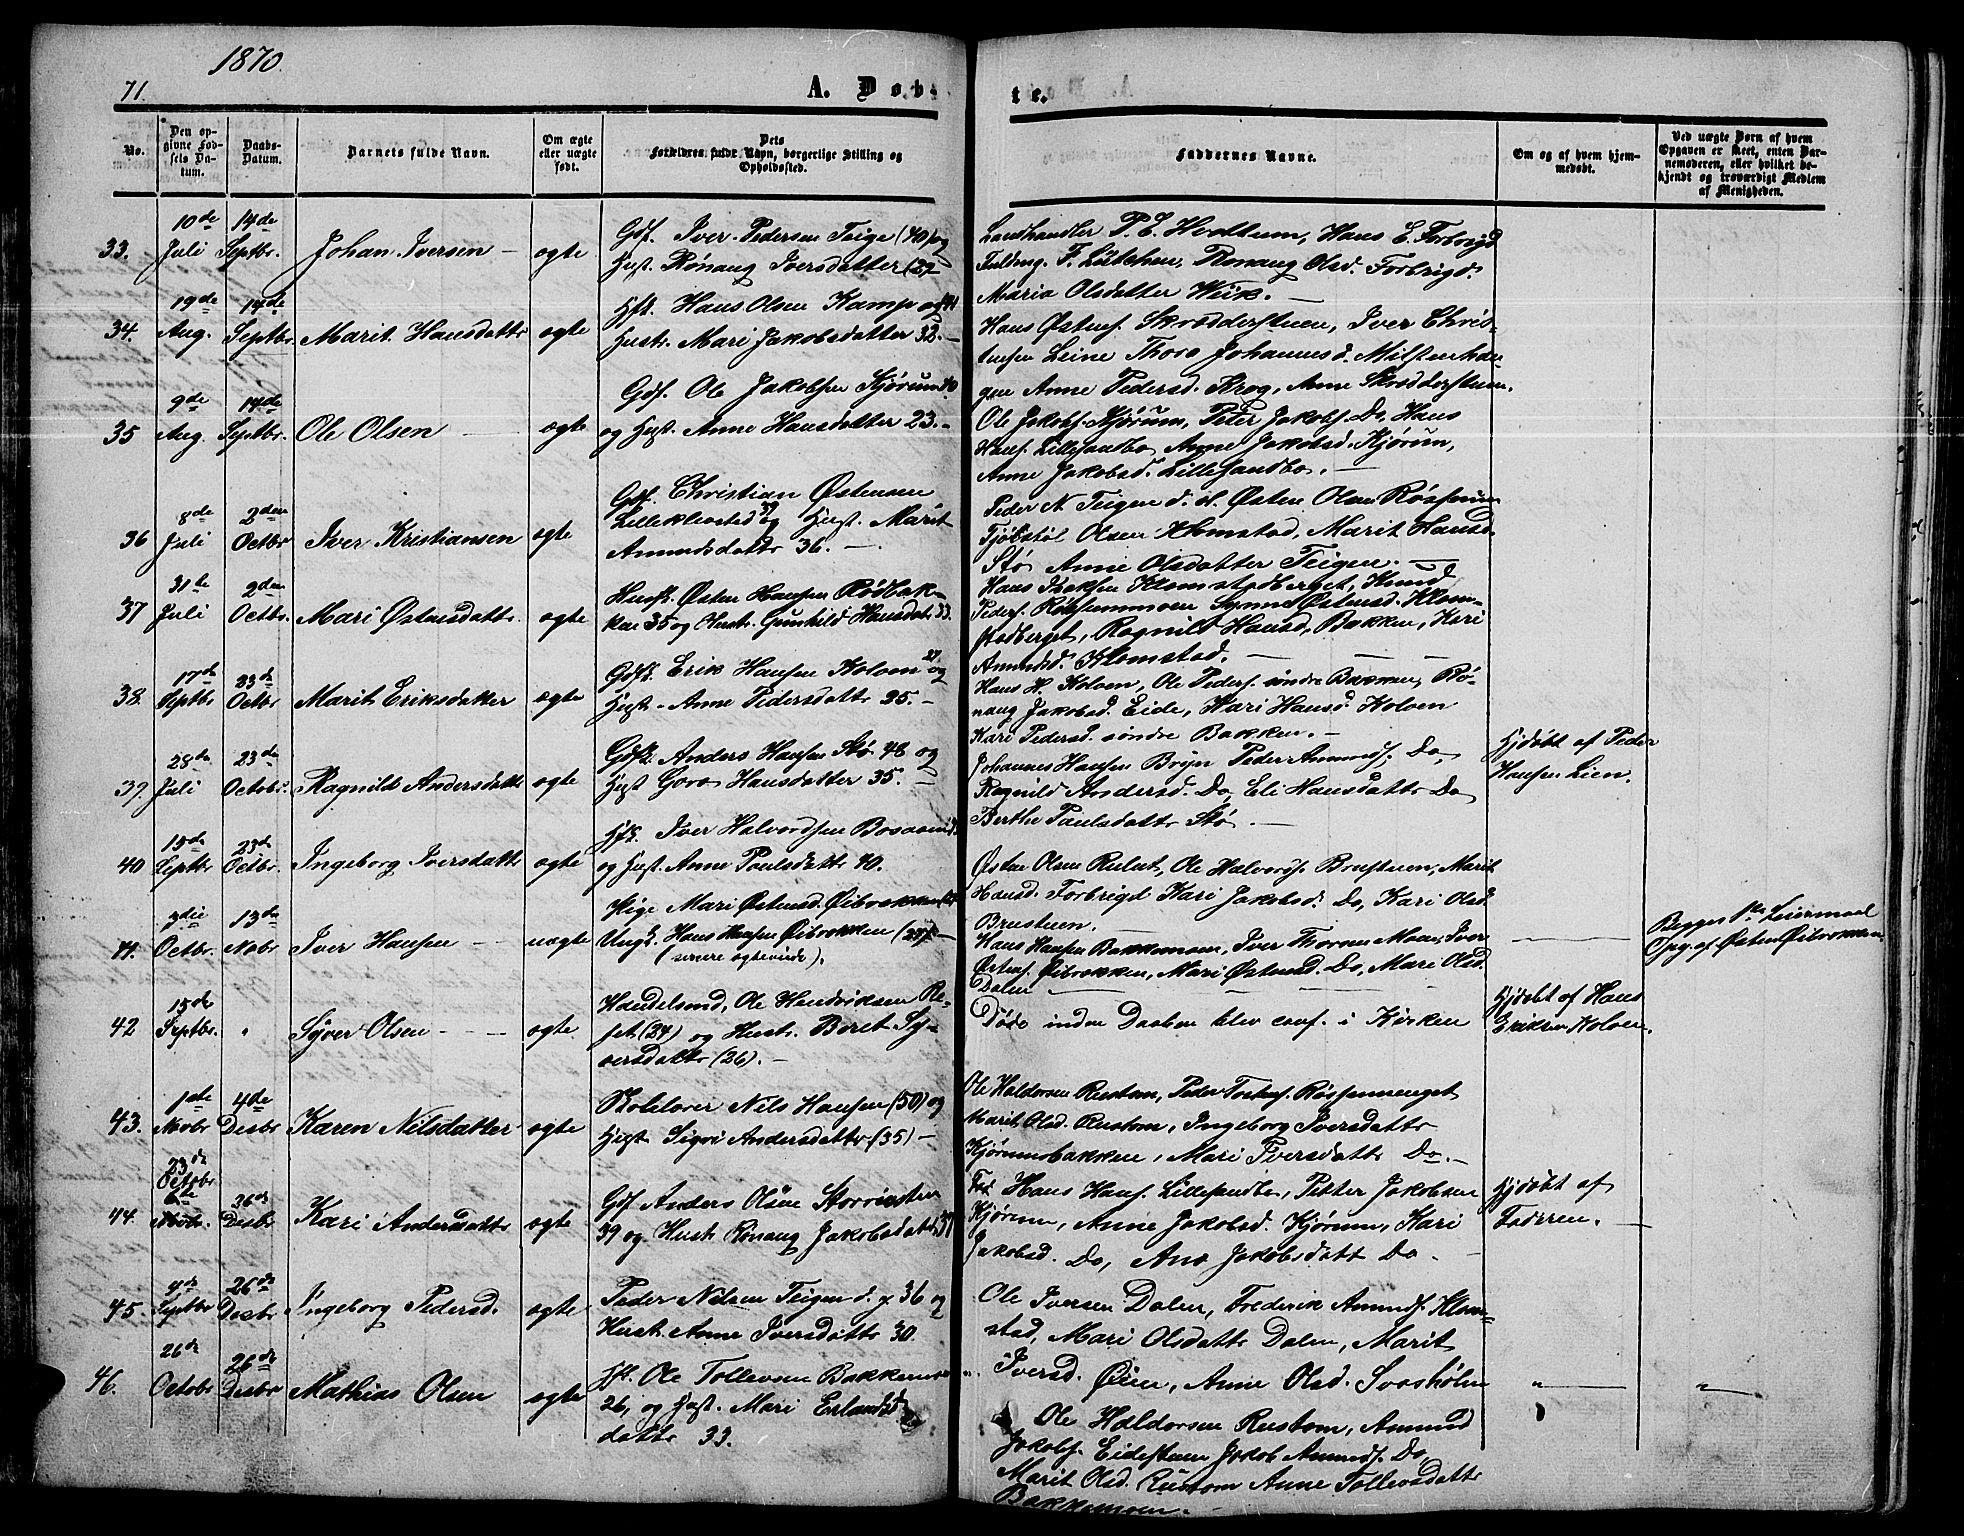 1870.
71.
A. Døbte.
No.
Den opgivne Fødsels Datum.
Daabs-Datum.
Barnets fulde Navn.
Om ægte eller uægte født.
Dets Forældres fulde Navn, borgerlige Stilling og Opholdssted.
Faddernes Navne.
Om og af hvem hjemmedøbt.
Ved uægte Børn af hvem Opgaven er skeet, enten Barnemoderen, eller hvilket bekjendt og troværdigt Medlem af Menigheden.
33.
10de Juli
14de Septbr.
Johan Iversen
ægte
Gdf. Iver Pedersen Teige (40) og
Hust. Rønaug Iversdatter (27
Landhandler P. E. Hvattum, Hans E. Forbrigd
Fuldmg. F. Lütchen, Rønaug Olsd. Forbrigd.
Maria Olsdatter Wiik.
34.
19de Aug.
14de Septbr.
Marit Hansdattr
ægte
Hans Olsen Kamp og 44
Hustr. Mari Jakobsdatter 32.
Hans Østens. Skrædderstuen, Iver Chris-
tensen Leine Thora Johannesd. Milstenhau-
gen Anne Pedersd. Krog, Anne Skrædderstuen.
35
9de Aug.
14de Septbr.
Ole Olsen
ægte
Gdf. Ole Jakobsen Kjørum 30
og Hust. Anne Hansdatter 23.
Ole Jakobs. Kjørum, Peter Jakobs. Do, Hans
Hans. Lillesandbo Anne Jakobsd. Kjørum,
Anne Jakobsd. Lillesandbo.
36
8de Juli
2den Octbr
Iver Kristiansen
ægte
Gdf. Christian Østensen
Lilleklevstad og Hust. Marit
Amundsdattr 36.
Peder N Teigen d. y. Østen Olsen Røssum
Tjøbstøl Olsen Klomstad, Marit Hansd.
Stø Anne Olsdatter Teigen.
37
31te Juli
2den Octbr.
Mari Østensdattr.
ægte
Husm. Østen Hansen Rødbak-
ken 35 og Hustr. Gunhild Hansdat. 33.
Hans Isaksen Klomstadberget, Knud
Peders. Røssummoen Synne Østensd. Klom-
stadberget, Ragnild Hansd. Bakken, Kari
Amundsd. Klomstad.
38.
17de Septbr
23de Octbr
Marit Eriksdatter
ægte
Gdf. Erik Hansen Kolven 27 og
Hust. Anne Pedersdattr 25.
Hans H. Kolven, Ole Peders. søndre Bakken, Rø-
naug Jakobsd. Eide, Kari Hansd. Kolven
Kari Pedersd. søndre Bakken.
39
28de Juli
23de Octobr.
Ragnild Andersdattr
ægte
Gdf. Anders Hansen Stø 48 og
Hust Goro Hansdatter 35.
Johannes Hansen Bryn Peder Amunds. Do,
Ragnild Andersd. Do, Eli Hansdattr Do
Berthe Paulsdattr Stø.
Hjdøbt af Peder
Hansen Lien.
40
15de Septbr
23de Octbr.
Ingeborg Iversdattr
ægte
Iver Halvordsen
og Hust. Anne Paulsdattr 40.
Østen Olsen Rulut, Ole Halvords. Brustuen, Marit
Hansd. Forbrigd Kari Jakobsd. Do, Kari Olsd.
Brustuen.
41.
3die Octbr.
13de Nobr
Iver Hansen
uægte
Pige Mari Østensd. Øibrækken
Ungk. Hans Hansen Øibrekken (27)
(senere ægteviede).
Hans Hansen Bakkemoen, Iver Thorsen Moen, Iver
Østens. Øibrækken, Mari Østensd. Do, Mari Olsd.
Dalen
Begges 1ste Leiermaal
Opg. af Østen Øibrækken.
42
15de Septbr.
Syver Olsen
ægte.
Handelsmd, Ole Hendriksen Re-
set (24) og Hustr. Beret Sy-
versdattr (26).
Døde inden Daaben blev conf. i Kirken
Hjdøbt af Hans
Eriksen Kolven.
43.
1ste Nobr
4de Desbr
Karen Nilsdatter
ægte
Skolelærer Nils Hansen (50) og
Hust Sigri Andersdattr (35)
Ole Haldorsen Rustom, Peder Tostens. Røssumenget
Marit Olsd. Rustom, Ingeborg Iversdattr
Kjørumsbakken, Mari Iversdattr Do.
44.
23de Octobr
6te Nobr.
26de Desbr
Kari Andersdattr
ægte
Gdf Anders Olsen Storviksten
39 og Hustr Rønaug Jakobsdattr 37
Hans Hans. Lillesandbo, Petter Jakobsen
Kjørum, Anne Jakobsd. Kjørum, Kari
Jakobsd. Do, Ane Jakobsdatt Do.
Hjdøbt af
Faderen.
45.
4de Septbr
26de Desbr
Ingeborg Pedersd.
ægte
Peder Nilsen Teigen d. y 36 og
Hust. Anne Iversdattr 30.
Ole Iversen Dalen, Frederik Amunds. Klom-
stad, Mari Olsdattr Dalen, Marit
Iversd. Øien, Anne Olsd. Svashølen
46.
26de Octobr
26de Desbr
Mathias Olsen
ægte
Ole Tollevsen Bakkemoen
26, og Hust. Mari Erlands-
dattr 33.
Ole Haldorsen Rustom, Amund
Jakobs. Eidestuen Jakob Amunds. Do,
Marit Olsd. Rustom Anne Tollevsdattr
Bakkemoen.